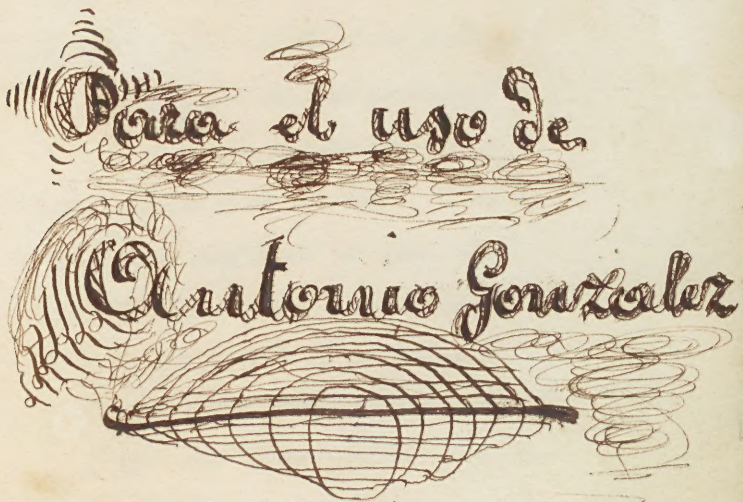 Para el uso de
Antonio Gonzalez